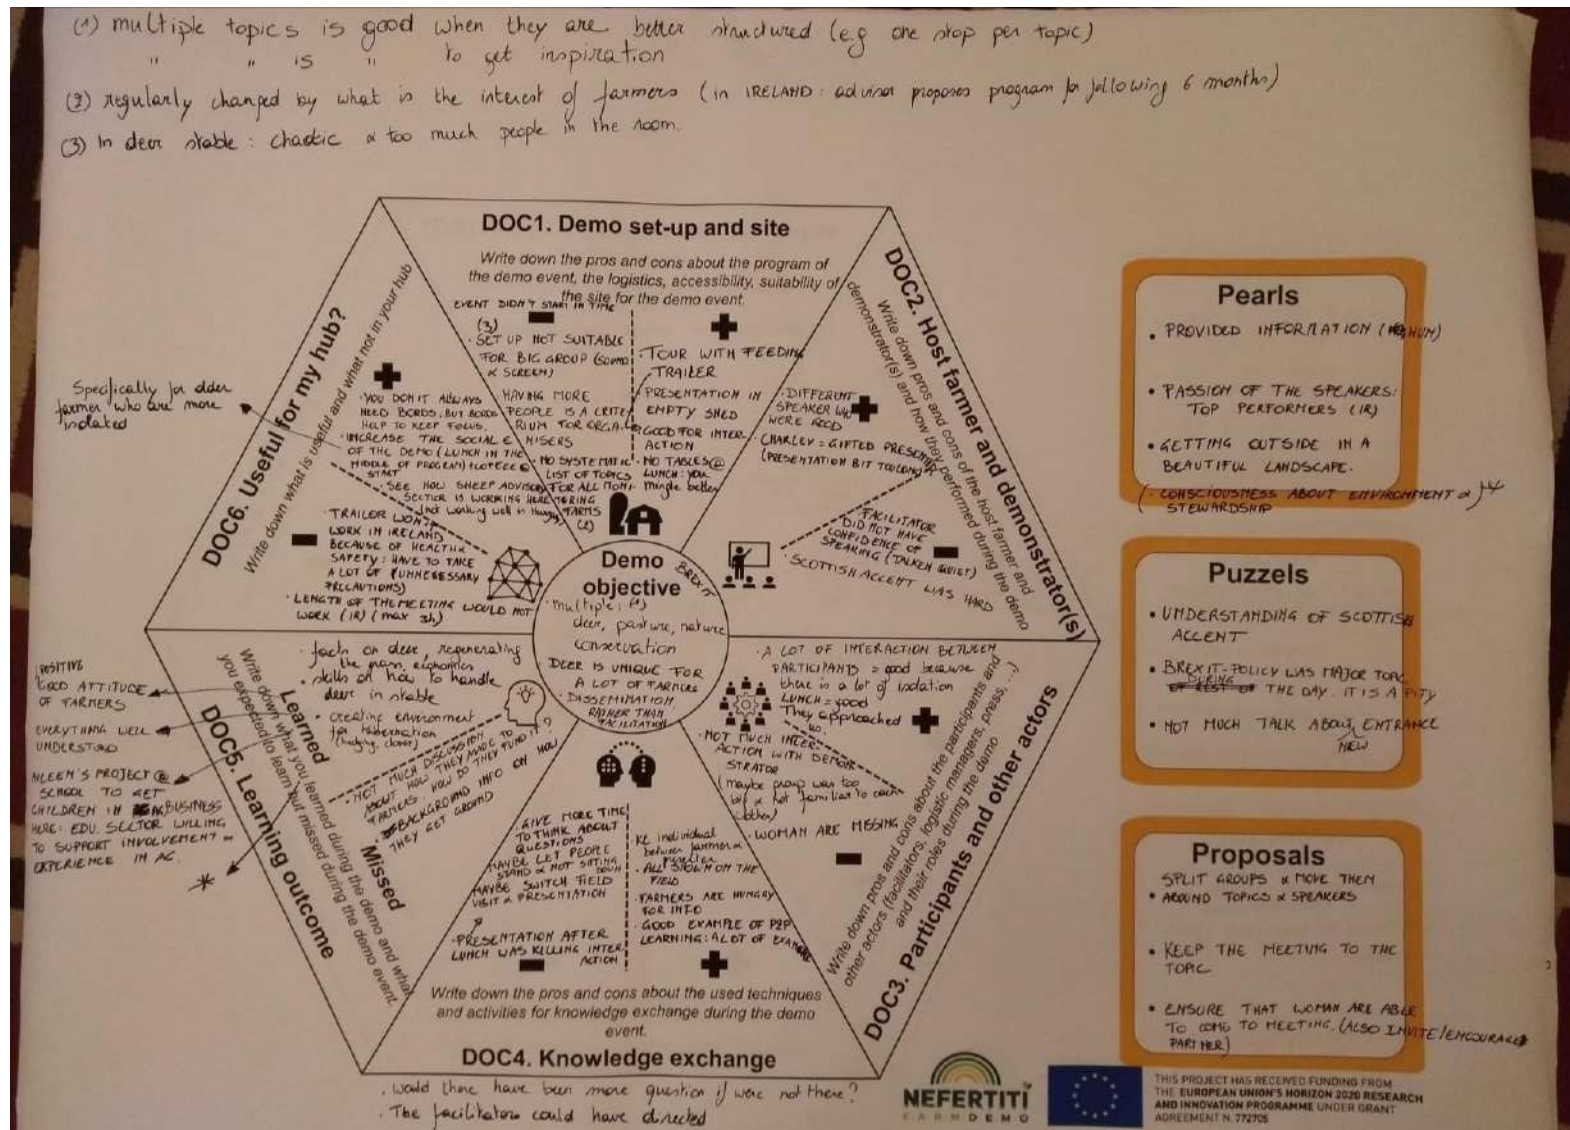 (1) multiple topics is good when they are better structured (e.g one stop per topic)
" " is " to get inspiration
(2) regularly changed by what is the interest of farmers (in IRELAND: advisor proposes program for following 6 months)
(3) In deer stable: chaotic & too much people in the room.
DOC1. Demo set-up and site
Write down the pros and cons about the program of
the demo event, the logistics, accessibility, suitability of
the site for the demo event.
EVENT DIDN'T START IN TIME
(3)
· SET UP NOT SUITABLE
FOR BIG GROUP (SOUND
& SCREEN)
HAVING MORE
PEOPLE IS A CRITE-
RIUM FOR ORGA-
NISERS
· NO SYSTEMATIC
LIST OF TOPICS
FOR ALL MONI-
TORING
FARMS
(2)
· TOUR WITH FEEDING
TRAILER
PRESENTATION IN
EMPTY SHED
· GOOD FOR INTER-
ACTION
· NO TABLES @
LUNCH: you
mingle better
DOC2. Host farmer and demonstrator(s)
Write down pros and cons of the host farmer and
demonstrator(s) and how they performed during the demo
· DIFFERENT
SPEAKER
WERE GOOD
· CHARLEY = GIFTED PRESENTER
(PRESENTATION BIT TOO LONG)
· FACILITATOR
DID NOT HAVE
CONFIDENCE OF
SPEAKING (TALKED QUIET)
· SCOTTISH ACCENT WAS HARD
DOC3. Participants and other actors
Write down pros and cons about the participants and
other actors (facilitators, logistic managers, press, ...)
and their roles during the demo
· A LOT OF INTERACTION BETWEEN
PARTICIPANTS = good because
there is a lot of isolation
LUNCH = good
They approached
us.
· NOT MUCH INTER-
ACTION WITH DEMON-
STRATOR
(maybe group was too
big & not familiar to each
other)
· WOMAN ARE MISSING
DOC4. Knowledge exchange
Write down the pros and cons about the used techniques
and activities for knowledge exchange during the demo
event.
· GIVE MORE TIME
TO THINK ABOUT
QUESTIONS
MAYBE LET PEOPLE
STAND & NOT SITTING
DOWN
MAYBE SWITCH FIELD
VISIT & PRESENTATION
· PRESENTATION AFTER
LUNCH WAS KILLING INTER-
ACTION
KE individual
between farmer &
· ALL SHOWN ON THE
FIELD
· FARMERS ARE HUNGRY
FOR INFO
· GOOD EXAMPLE OF P2P
LEARNING: A LOT OF
· Would there have been more question if were not there?
· The facilitators could have directed
DOC5. Learning outcome
Write down what you learned during the demo and what
you expected to learn but missed during the demo event.
Learned
Missed
· facts on deer, regenerating
the grass, economics
· skills on how to handle
deer in stable
· creating environment
for hibernation
· NOT MUCH DISCUSSION
ABOUT HOW THEY MADE TO
FARMERS. HOW DO THEY FUND IT?
· BACKGROUND INFO ON HOW
THEY GET GROUND
POSITIVE
GOOD ATTITUDE
OF FARMERS
EVERYTHING WELL
UNDERSTOOD
PROJECT @
SCHOOL TO GET
CHILDREN IN BUSINESS
HERE: EDU. SECTOR WILLING
TO SUPPORT INVOLVEMENT
EXPERIENCE IN AG.
DOC6. Useful for my hub?
Write down what is useful and what not in your hub
Specifically for older
farmer who are more
isolated
· YOU DON'T ALWAYS
NEED BORDS, BUT BORDS
HELP TO KEEP FOCUS.
· INCREASE THE SOCIAL E
OF THE DEMO (LUNCH IN THE
MIDDLE OF PROGRAM) (COFFEE @
START
· SEE HOW SHEEP ADVISOR
SECTOR IS WORKING HERE
(not working well in Hungary)
· TRAILER WON'T
WORK IN IRELAND
BECAUSE OF HEALTH &
SAFETY: HAVE TO TAKE
A LOT OF (UNNECESSARY
PRECAUTIONS)
· LENGTH OF THE MEETING WOULD NOT
WORK (IR) (max 3h)
Demo
objective
BREXIT
· multiple: (1)
deer, pasture, nature
conservation
· DEER IS UNIQUE FOR
A LOT OF FARMERS
· DISSEMINATION
RATHER THAN
FACILITATION
Pearls
· PROVIDED INFORMATION (HUN)
· PASSION OF THE SPEAKERS:
TOP PERFORMERS (IR)
· GETTING OUTSIDE IN A
BEAUTIFUL LANDSCAPE.
(· CONSCIOUSNESS ABOUT ENVIRONMENT &)
STEWARDSHIP
Puzzels
· UNDERSTANDING OF SCOTTISH
ACCENT
· BREXIT-POLICY WAS MAJOR TOPIC
DURING THE DAY. IT IS A PITY
· NOT MUCH TALK ABOUT NEW ENTRANCE
Proposals
SPLIT GROUPS & MOVE THEM
· AROUND TOPICS & SPEAKERS
· KEEP THE MEETING TO THE
TOPIC
· ENSURE THAT WOMAN ARE ABLE
TO COME TO MEETING. (ALSO INVITE/ENCOURAGE
PARTNER)
NEFERTITI
FARMDEMO
THIS PROJECT HAS RECEIVED FUNDING FROM
THE EUROPEAN UNION'S HORIZON 2020 RESEARCH
AND INNOVATION PROGRAMME UNDER GRANT
AGREEMENT N. 772705